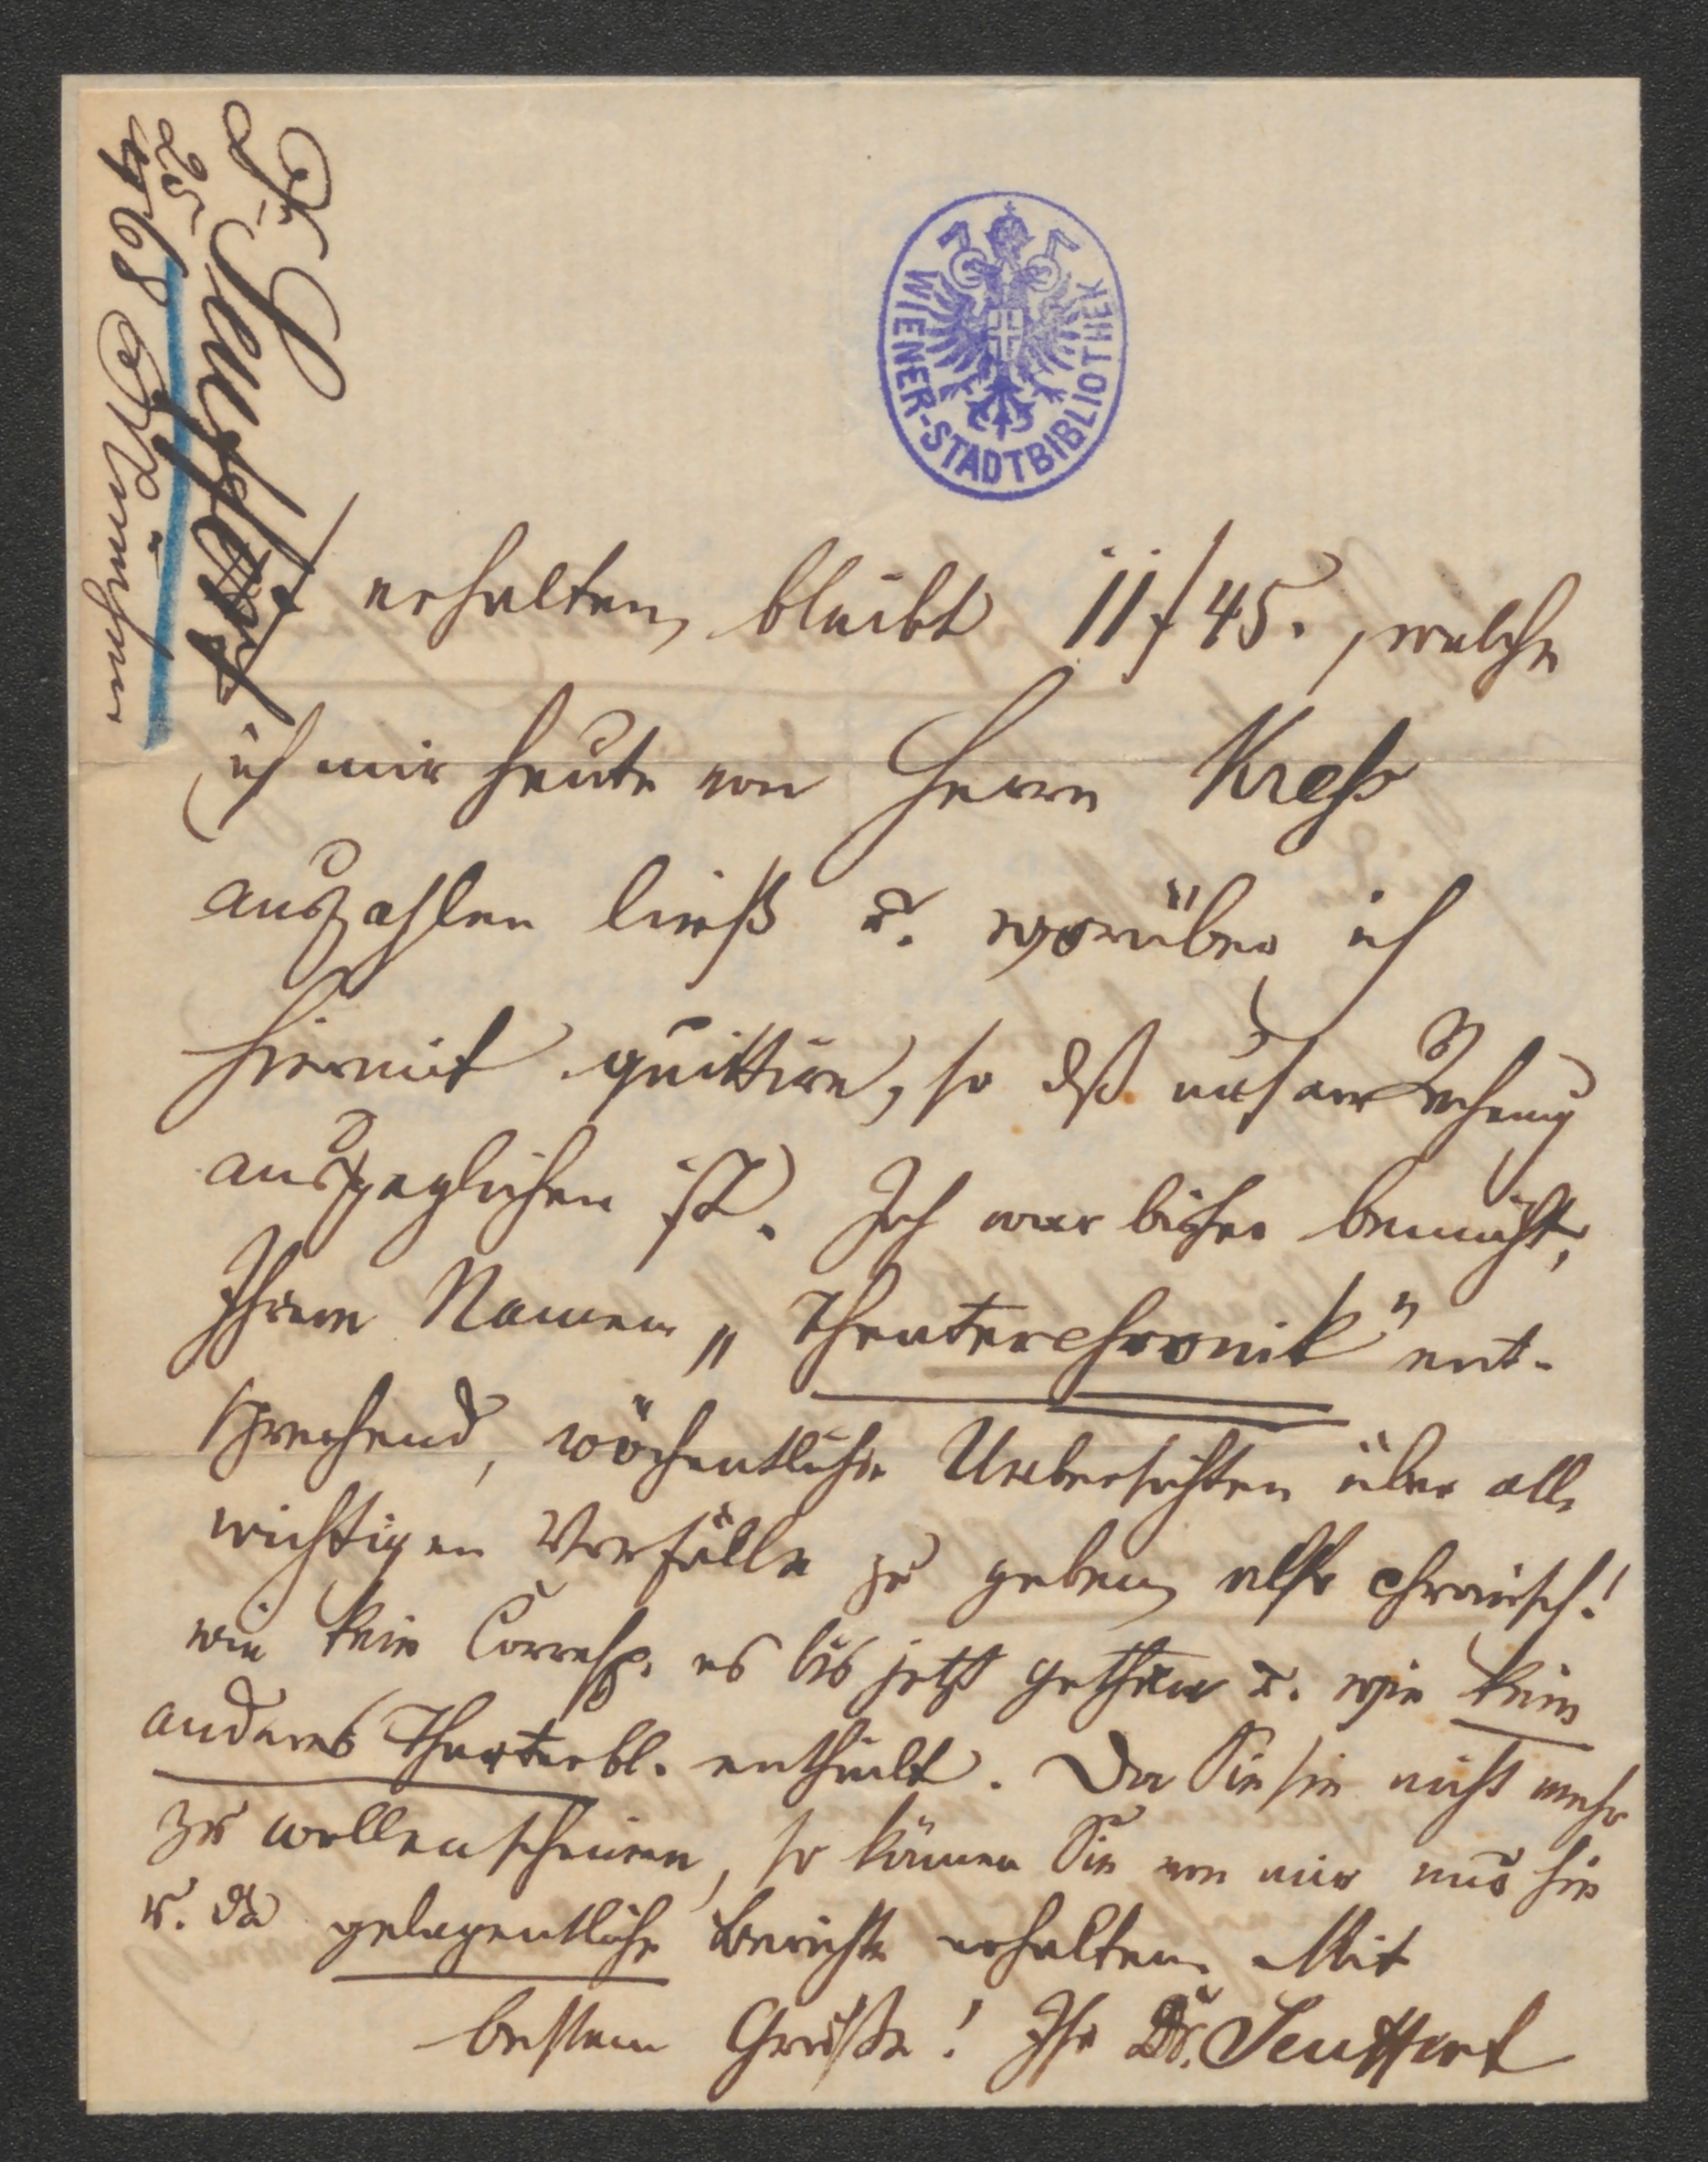 Dr. Seuffert
25/4 68
München
WIENER-STADTBIBLIOTHEK
erhalten, bleibt 11 f 45., welche
ich mir heute von Herrn Kreß
auszahlen ließ u. worüber ich
hiermit quittire, so dß unsere Rechnung
ausgeglichen ist. Ich war bisher bemüht,
Ihrem Namen „Theaterchronik" ent-
sprechend, wöchentliche Uebersichten über alle
wichtigen Vorfälle zu geben, also chronisch!
wie kein Corresp. es bis jetzt gethan u. wie kein
anderes Theaterbl. enthielt. Da Sie sie nicht mehr
zu wollen scheinen, so können Sie von mir nur hie
u. da gelegentliche Berichte erhalten. Mit
bestem Gruße! Ihr Dr. Seuffert